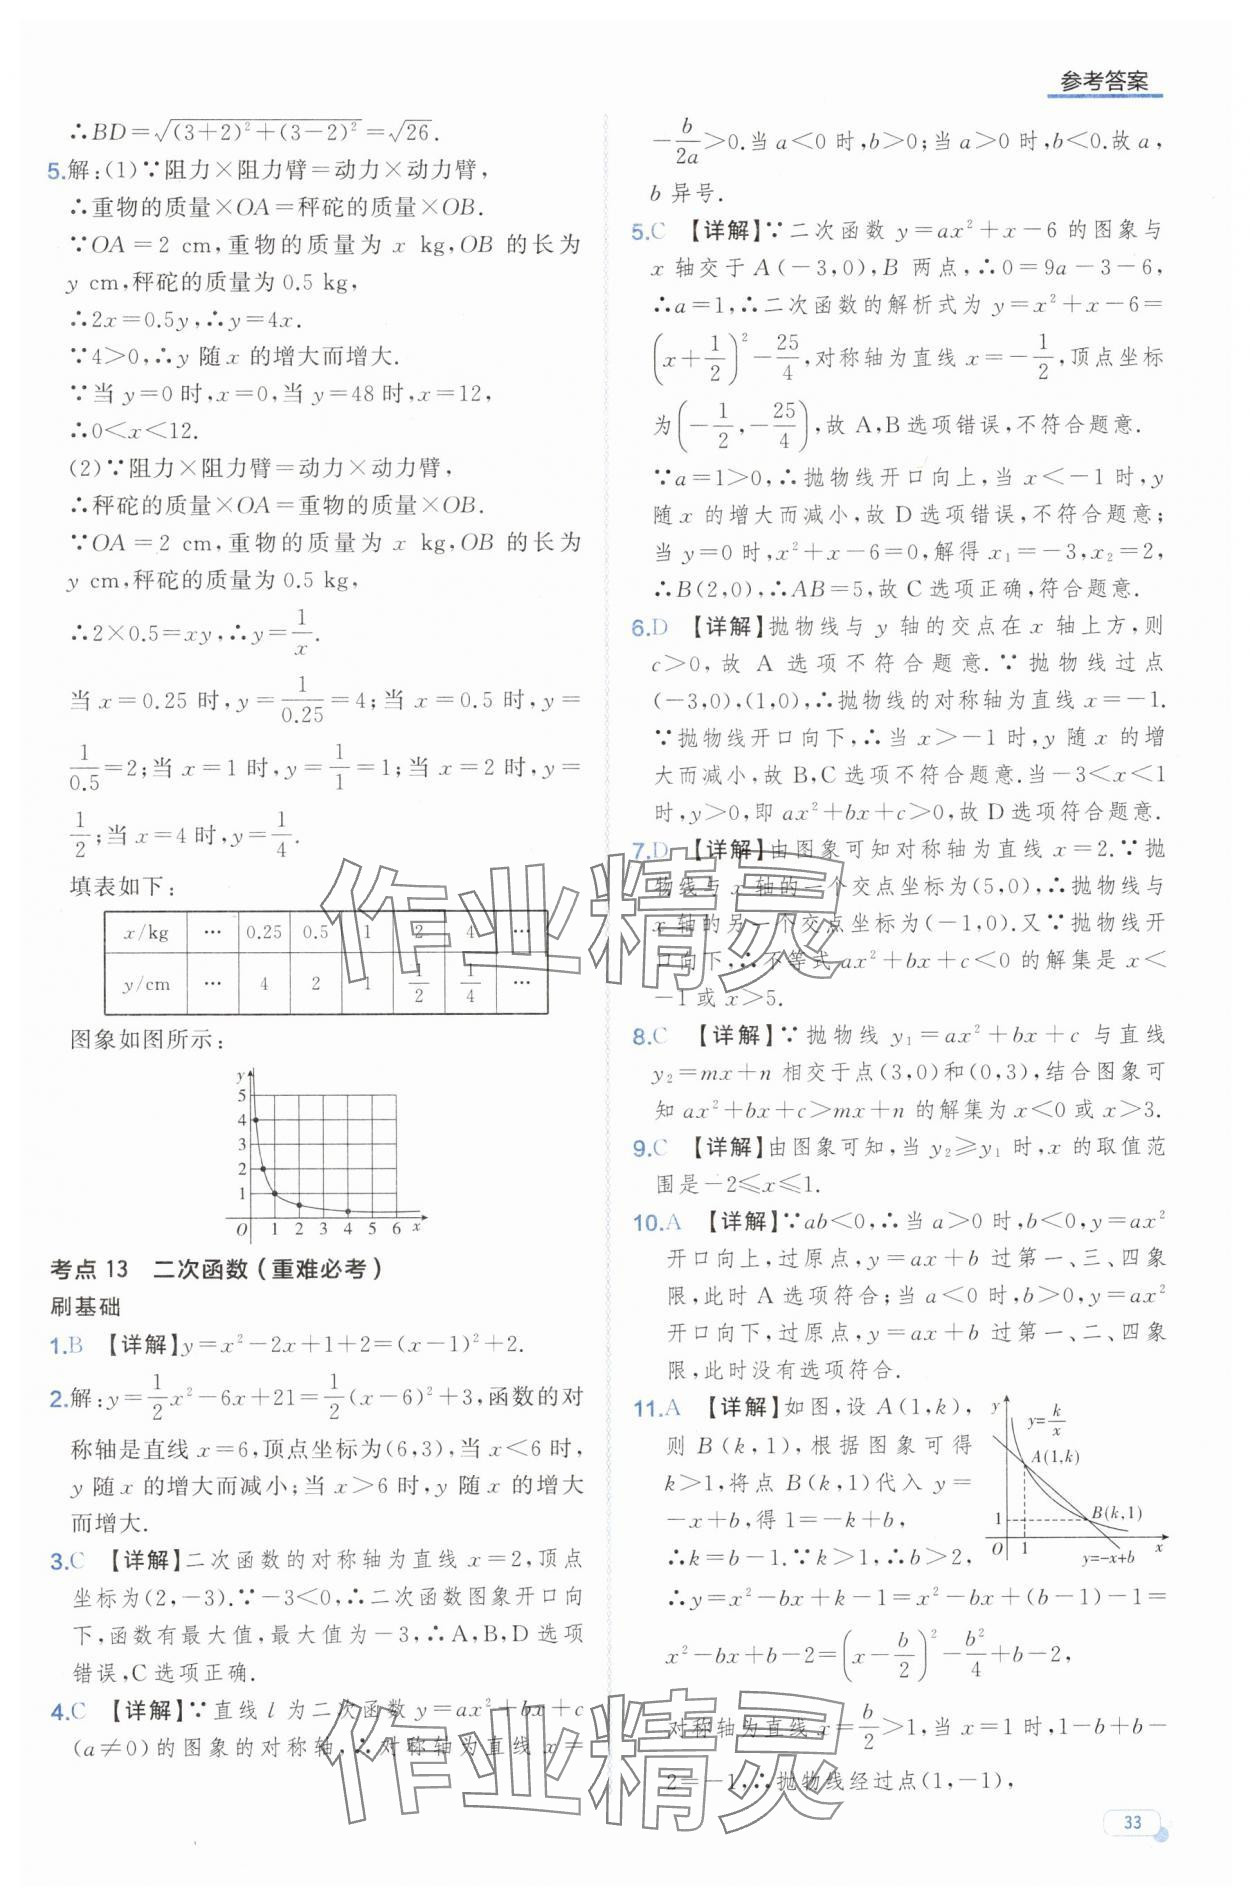 参考答案
∴BD=√((3+2)²+(3-2)²)=√26.
5.解:(1)∵阻力×阻力臂=动力×动力臂,
∴重物的质量×OA=秤砣的质量×OB.
∵OA=2 cm,重物的质量为 x kg,OB 的长为
y cm,秤砣的质量为0.5 kg,
∴2x=0.5y,∴y=4x.
∵4>0,∴y 随 x 的增大而增大.
∵当 y=0 时,x=0,当 y=48 时,x=12,
∴0<x<12.
(2)∵阻力×阻力臂=动力×动力臂,
∴秤砣的质量×OA=重物的质量×OB.
∵OA=2 cm,重物的质量为 x kg,OB 的长为
y cm,秤砣的质量为0.5 kg,
∴2×0.5=xy,∴y=1/x.
当 x=0.25 时,y=1/0.25=4;当 x=0.5 时,y=
1/0.5=2;当 x=1 时,y=1/1=1;当 x=2 时,y=
1/2;当 x=4 时,y=1/4.
填表如下:
x/kg … 0.25 0.5 1 2 4 …
y/cm … 4 2 1 1/2 1/4 …
图象如图所示:
y
5
4
3
2
1
O 1 2 3 4 5 6 x
考点 13 二次函数(重难必考)
刷基础
1.B 【详解】y=x²-2x+1+2=(x-1)²+2.
2.解:y=1/2x²-6x+21=1/2(x-6)²+3,函数的对
称轴是直线 x=6,顶点坐标为(6,3),当 x<6 时,
y 随 x 的增大而减小;当 x>6 时,y 随 x 的增大
而增大.
3.C 【详解】二次函数的对称轴为直线 x=2,顶点
坐标为(2,-3).∵-3<0,∴二次函数图象开口向
下,函数有最大值,最大值为-3,∴A,B,D 选项
错误,C 选项正确.
4.C 【详解】∵直线 l 为二次函数 y=ax²+bx+c
(a≠0)的图象的对称轴,∴对称轴为直线 x=
-b/2a>0.当 a<0 时,b>0;当 a>0 时,b<0.故 a,
b 异号.
5.C 【详解】∵二次函数 y=ax²+x-6 的图象与
x 轴交于 A(-3,0),B 两点,∴0=9a-3-6,
∴a=1,∴二次函数的解析式为 y=x²+x-6=
(x+1/2)²-25/4,对称轴为直线 x=-1/2,顶点坐标
为(-1/2,-25/4),故 A,B选项错误,不符合题意.
∵a=1>0,∴抛物线开口向上,当 x<-1 时,y
随 x 的增大而减小,故 D 选项错误,不符合题意;
当 y=0 时,x²+x-6=0,解得 x₁=-3,x₂=2,
∴B(2,0),∴AB=5,故 C 选项正确,符合题意.
6.D 【详解】抛物线与 y 轴的交点在 x 轴上方,则
c>0,故 A 选项不符合题意.∵抛物线过点
(-3,0),(1,0),∴抛物线的对称轴为直线 x=-1.
∵抛物线开口向下,∴当 x>-1 时,y 随 x 的增
大而减小,故 B,C 选项不符合题意.当-3<x<1
时,y>0,即 ax²+bx+c>0,故 D 选项符合题意.
7.D 【详解】由图象可知对称轴为直线 x=2.∵抛
物线与 x 轴的一个交点坐标为(5,0),∴抛物线与
x 轴的另一个交点坐标为(-1,0).又∵抛物线开
口向下,∴不等式 ax²+bx+c<0 的解集是 x<
-1 或 x>5.
8.C 【详解】∵抛物线 y₁=ax²+bx+c 与直线
y₂=mx+n 相交于点(3,0)和(0,3),结合图象可
知 ax²+bx+c>mx+n 的解集为 x<0 或 x>3.
9.C 【详解】由图象可知,当 y₂≥y₁ 时,x 的取值范
围是-2≤x≤1.
10.A 【详解】∵ab<0,∴当 a>0 时,b<0,y=ax²
开口向上,过原点,y=ax+b 过第一、三、四象
限,此时 A 选项符合;当 a<0 时,b>0,y=ax²
开口向下,过原点,y=ax+b 过第一、二、四象
限,此时没有选项符合.
11.A 【详解】如图,设 A(1,k),
则 B(k,1),根据图象可得
k>1,将点 B(k,1)代入 y=
-x+b,得 1=-k+b,
∴k=b-1.∵k>1,∴b>2,
y
y=k/x
A(1,k)
B(k,1)
1
O 1 x
y=-x+b
∴y=x²-bx+k-1=x²-bx+(b-1)-1=
x²-bx+b-2=(x-b/2)²-b²/4+b-2,
对称轴为直线 x=b/2>1,当 x=1 时,1-b+b-
2=-1,∴抛物线经过点(1,-1),
33
作业精灵
作业精灵